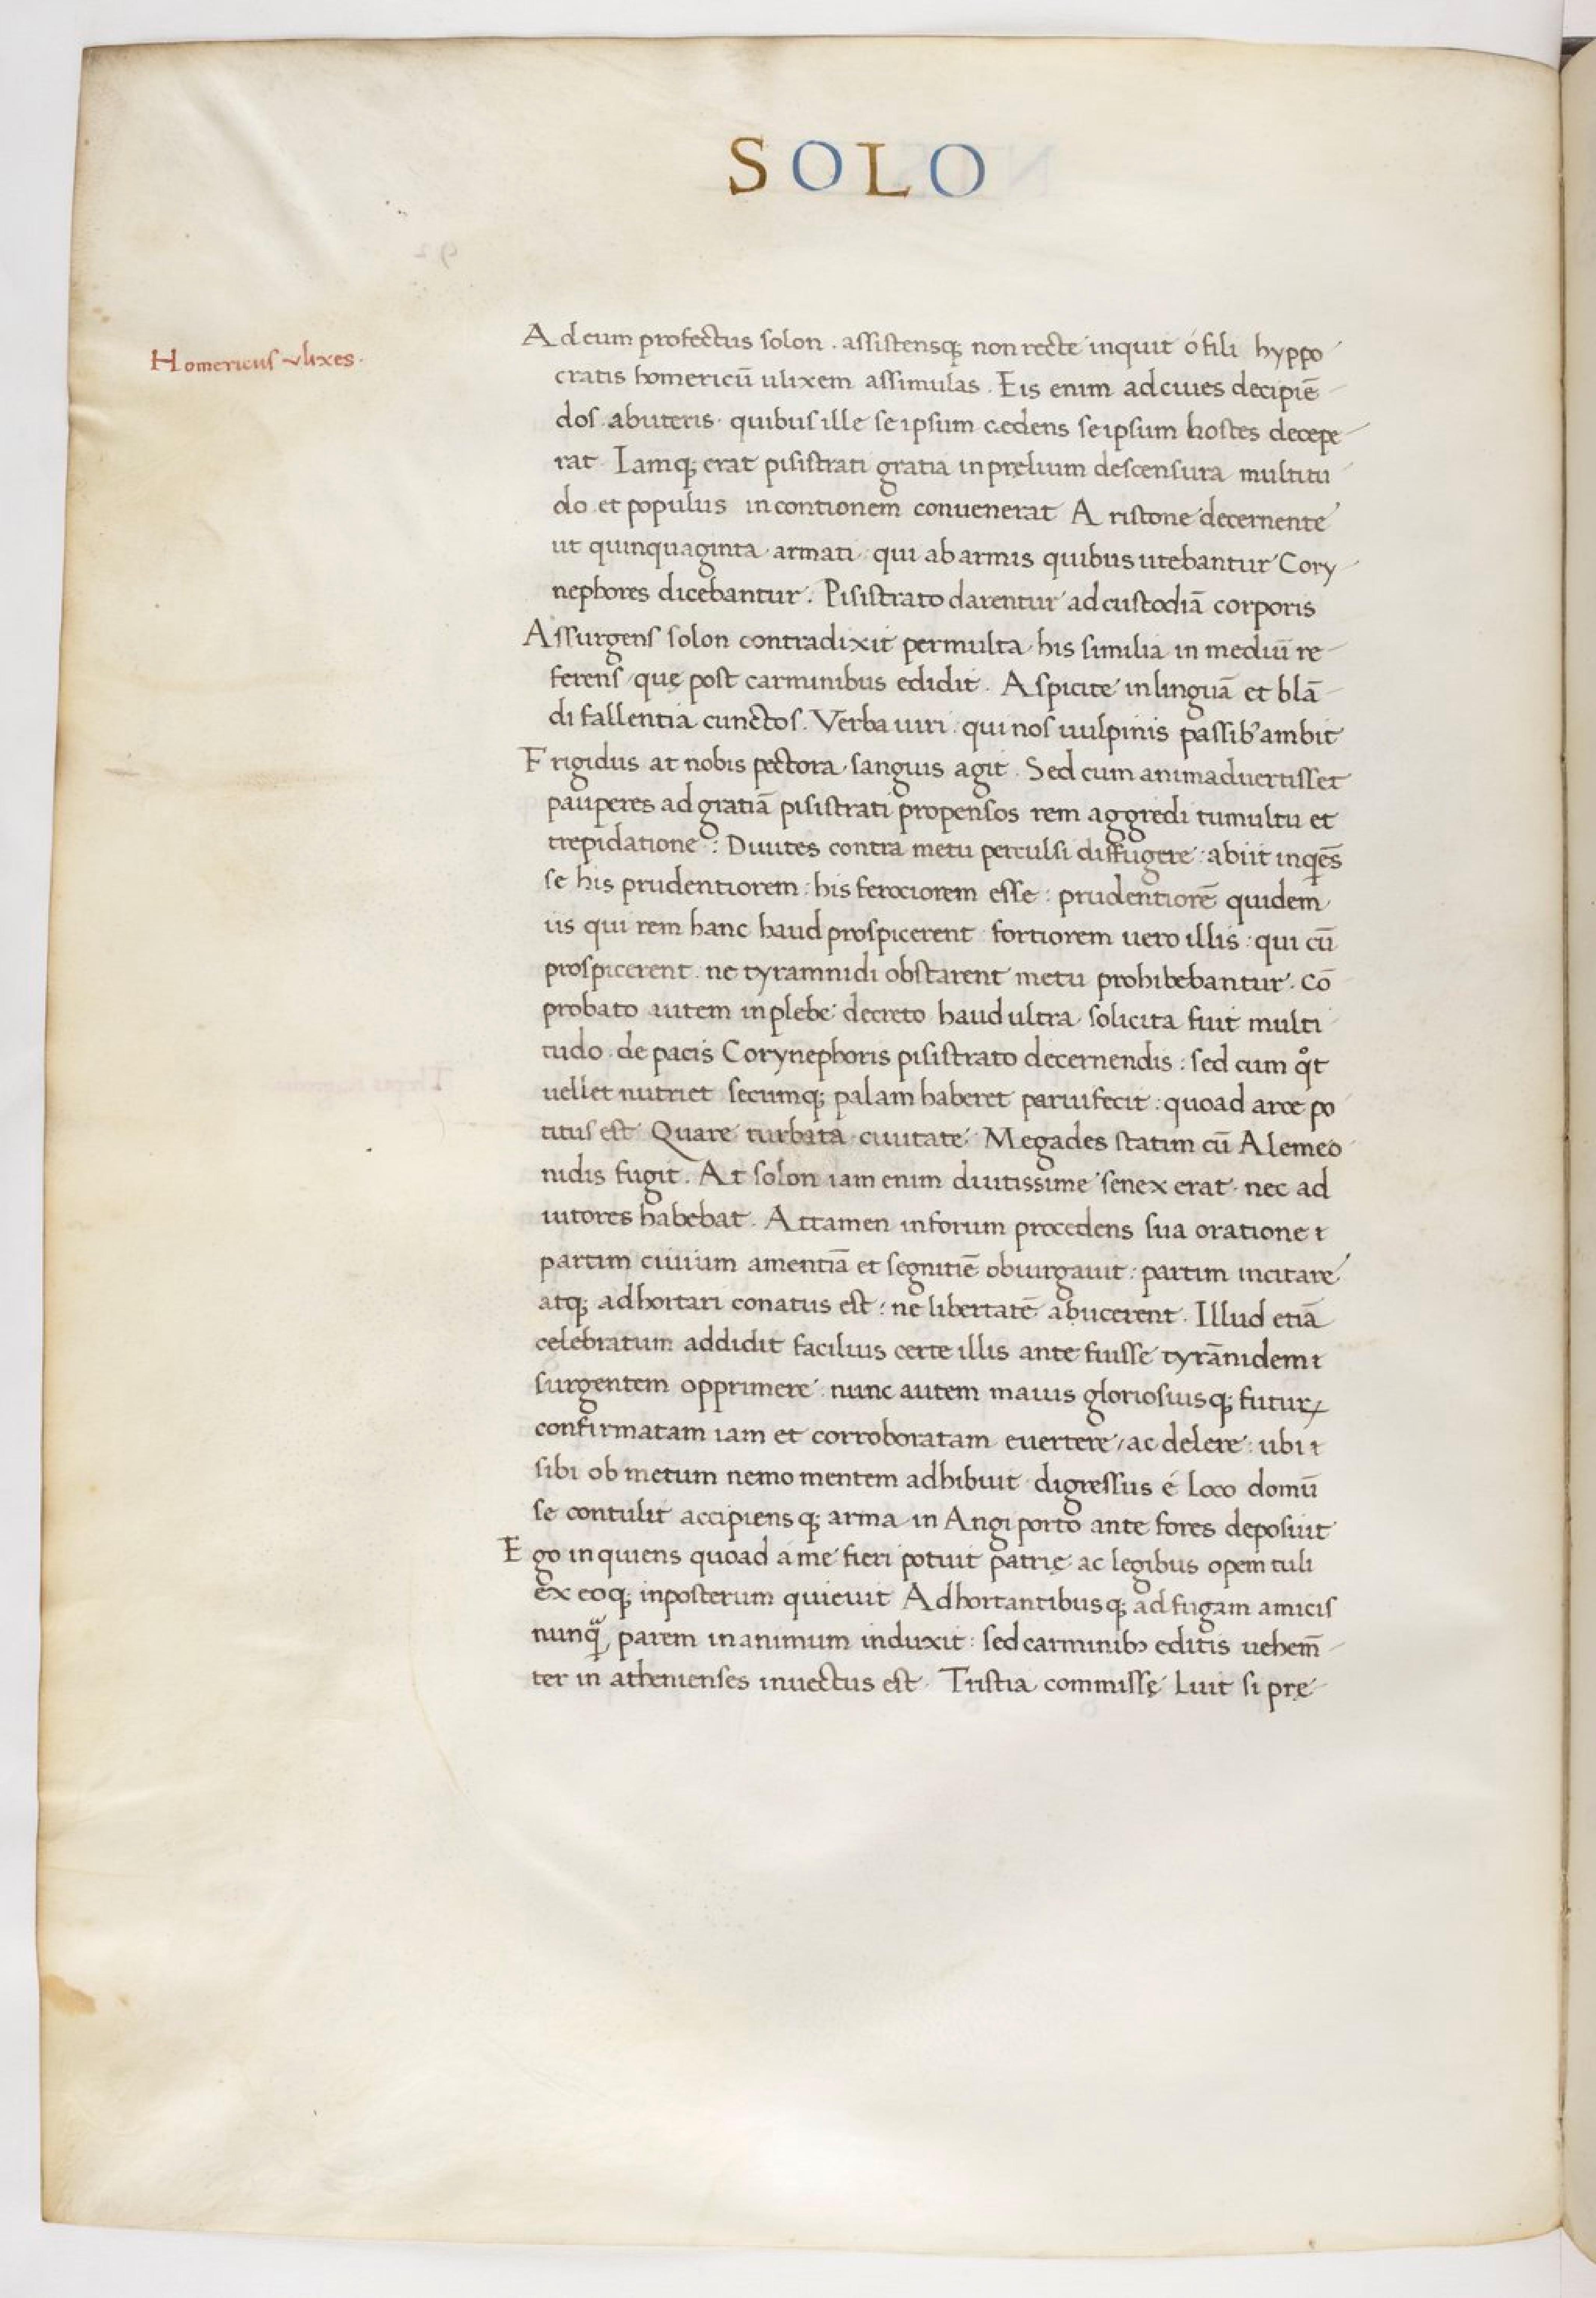 SOLO
Homericus vlixes.
Ad eum profectus solon. assistensq; non recte inquit ó fili hyppo
cratis homericū ulixem assimulas. Eis enim ad ciues decipiē
dos abuteris. quibus ille se ipsum cędens se ipsum hostes decepe
rat. Iamq; erat pisistrati gratia in pręlium descensura multitu
do et populus in contionem conuenerat Aristone decernente
ut quinquaginta armati qui ab armis quibus utebantur Cory
nephores dicebantur: Pisistrato darentur ad custodiā corporis
Assurgens solon contradixit permulta his similia in mediū re
ferens quę post carminibus edidit. Aspicite in linguā et blā
di fallentia cunctos. Verba uiri: qui nos uulpinis passibꝰ ambit
Frigidus at nobis pectora sanguis agit. Sed cum animaduertisset
pauperes ad gratiā pisistrati propensos rem aggredi tumultu et
trepidatione: Diuites contra metu perculsi diffugere: abiit inqēs
se his prudentiorem: his ferociorem esse: prudentiorē quidem
iis qui rem hanc haud prospicerent fortiorem uero illis: qui cū
prospicerent. ne tyramnidi obstarent metu prohibebantur. Cō
probato autem in plebe decreto haud ultra solicita fuit multi
tudo de pacis Corynephoris pisistrato decernendis: sed cum qͦt
uellet nutriet secumq; palam haberet paruifecit: quoad arce po
titus est. Quare turbata ciuitate: Megades statim cū Alemeo
nidis fugit. At solon iam enim diutissime senex erat. nec ad
iutores habebat. Attamen in forum procedens sua oratione ı
partim ciuium amentiā et segnitiē obiurgauit: partim incitare
atq; adhortari conatus est: ne libertatē abiicerent. Illud etiā
celebratum addidit facilius certe illis ante fuisse tyrānidem ı
surgentem opprimere nunc autem maius gloriosiusq; futuꝝ
confirmatam iam et corroboratam euertere, ac delere: ubi ı
sibi ob metum nemo mentem adhibuit digressus é loco domū
se contulit accipiensq; arma in Angiporto ante fores deposuit
Ego inquiens quoad á me fieri potuit patrię ac legibus opem tuli
ex eoq; in posterum quieuit Adhortantibusq; ad fugam amicis
nunq̈ parem in animum induxit: sed carminibꝰ editis uehem̄
ter in athenienses inuectus est. Tristia commissę Luit si prę